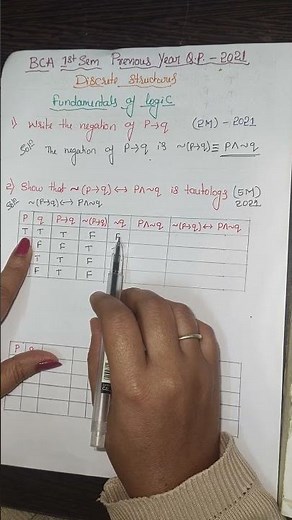 BCA 1st Sem Previous Year Q.P. - 2021
Discrete Structures
Fundamentals of logic
1) Write the negation of P→q (2M) - 2021
Sol: The negation of P→q is ~(P→q) ≡ P∧~q
2) Show that ~(P→q) ↔ P∧~q is tautology (5M) 2021
Sol: ~(P→q) ↔ P∧~q
P q P→q ~(P→q) ~q P∧~q ~(P→q) ↔ P∧~q
T T T F F
F F T
T T F
F T F
P